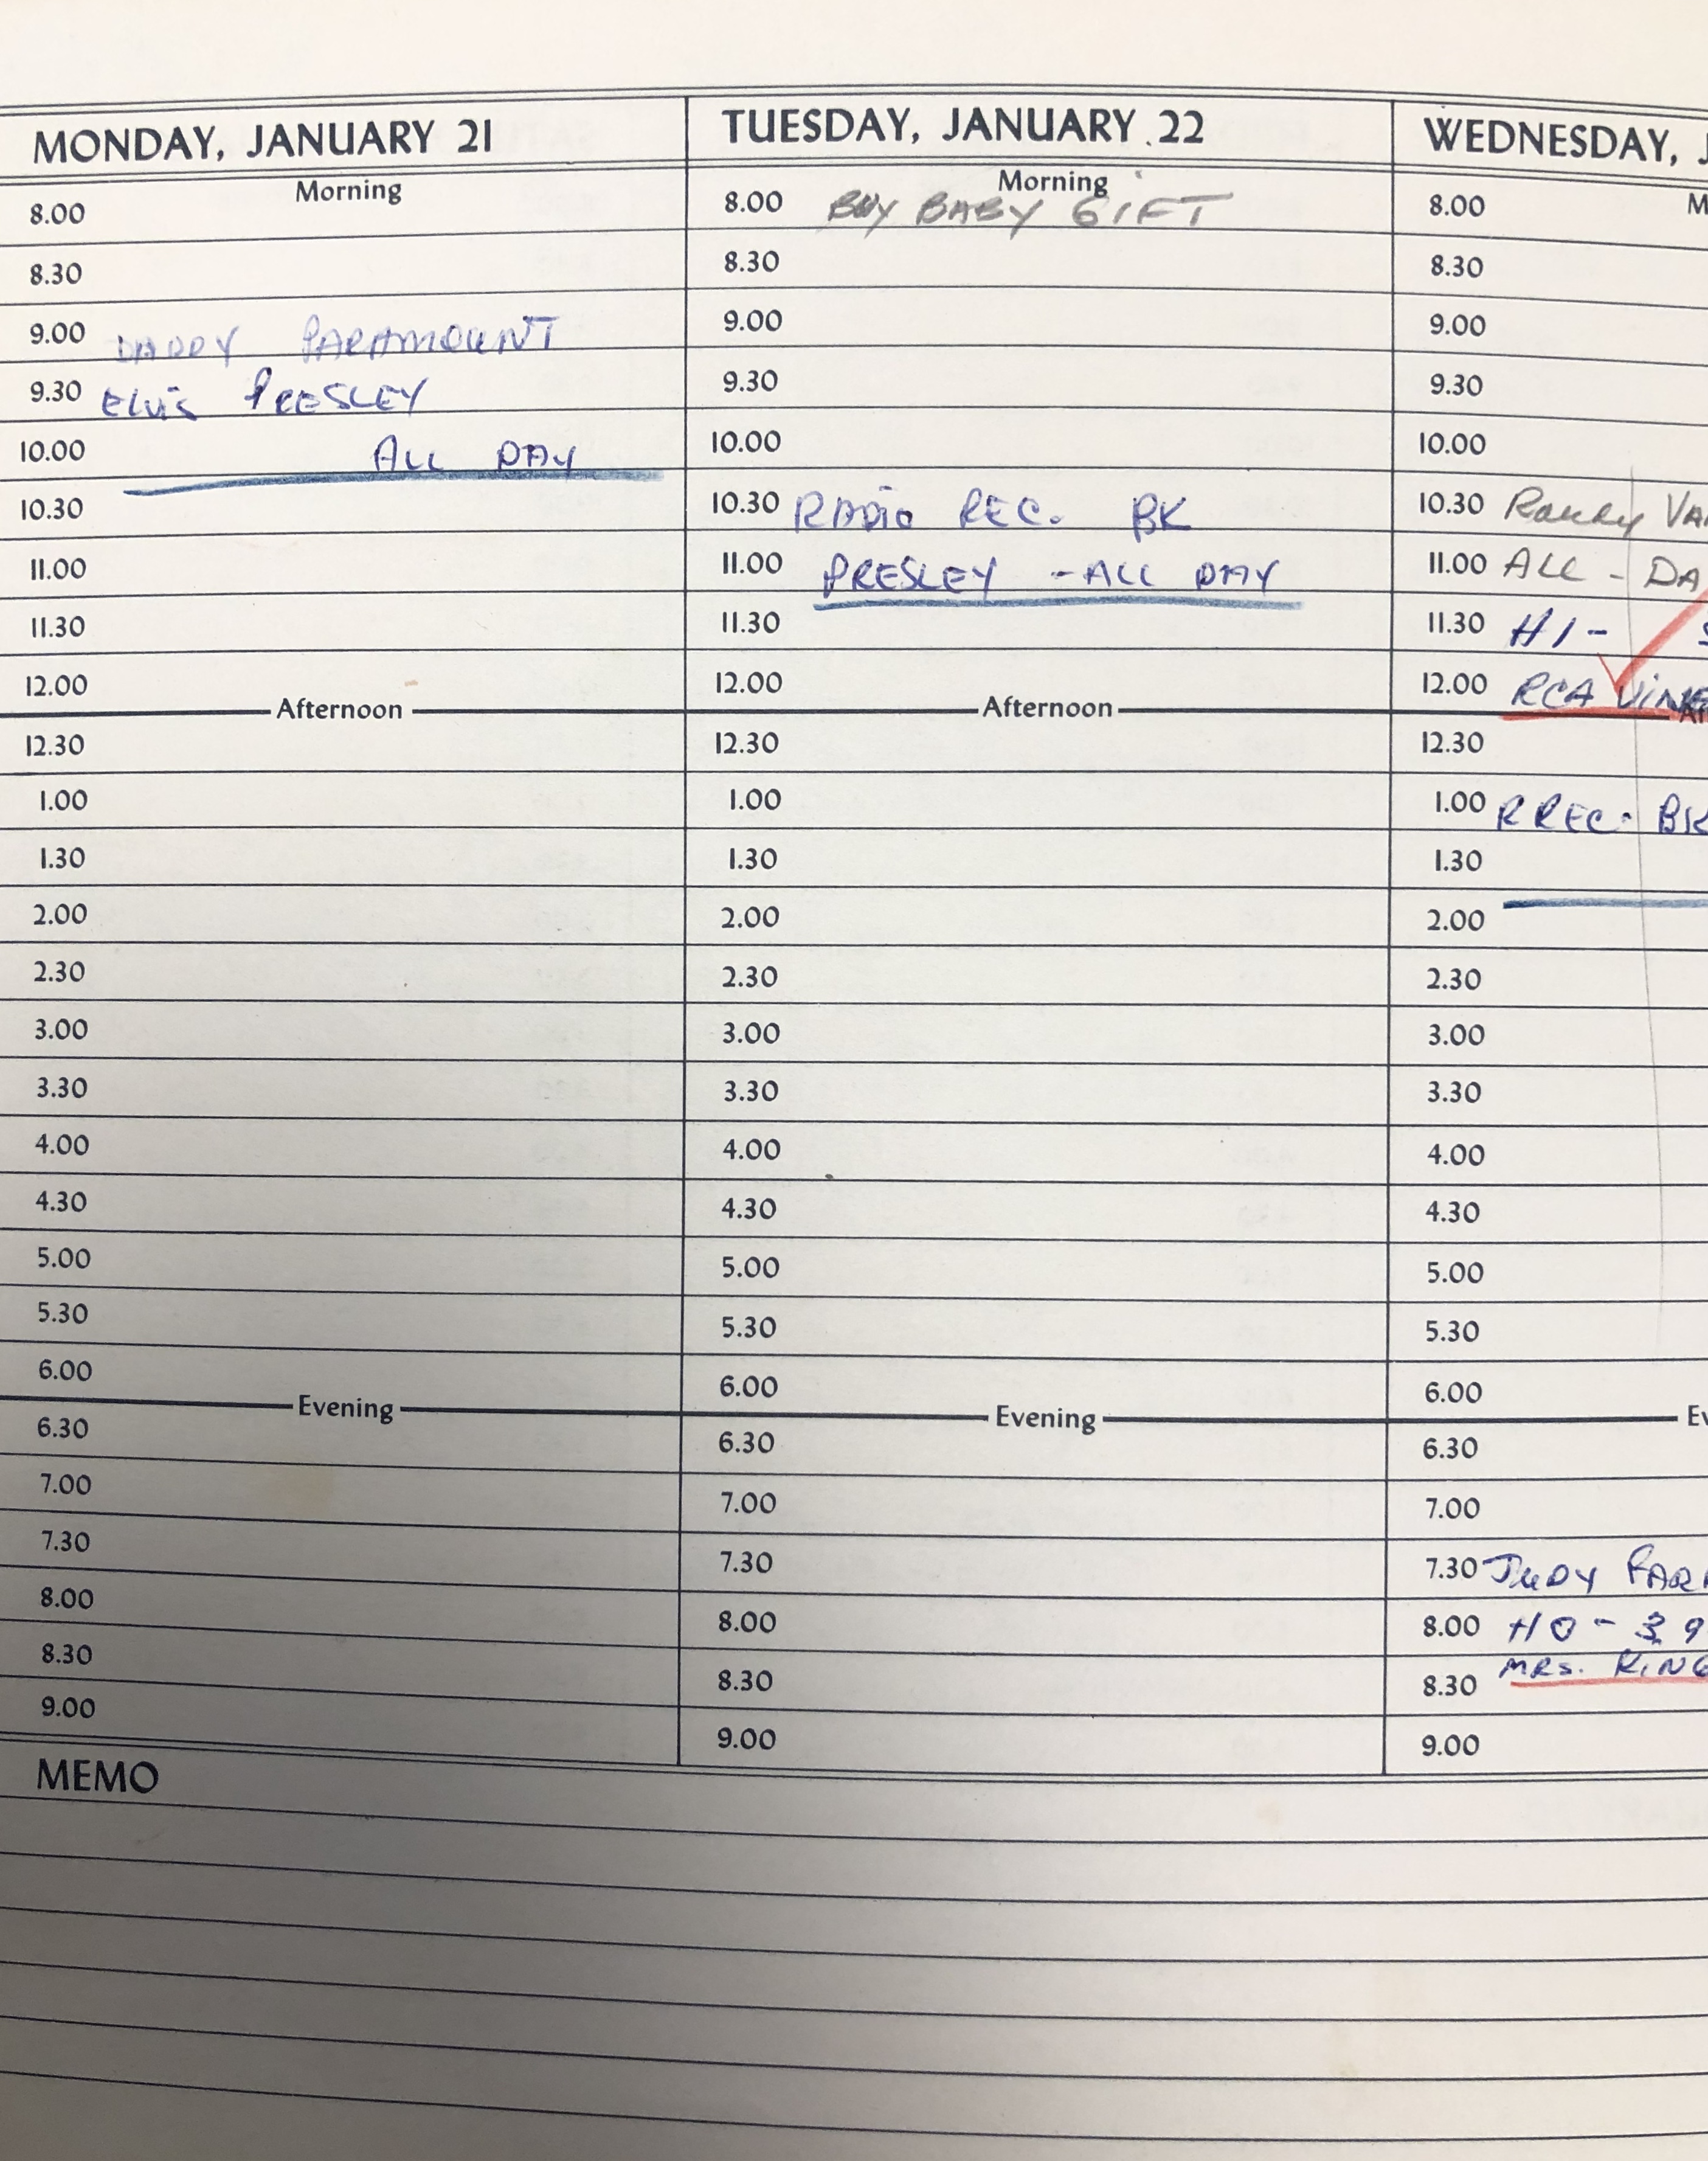 MONDAY, JANUARY 21
Morning
8.00
8.30
9.00 DADDY PARAMOUNT
9.30 ELVIS PRESLEY
10.00 ALL DAY
10.30
11.00
11.30
12.00
Afternoon
12.30
1.00
1.30
2.00
2.30
3.00
3.30
4.00
4.30
5.00
5.30
6.00
Evening
6.30
7.00
7.30
8.00
8.30
9.00
TUESDAY, JANUARY 22
Morning
8.00 BUY BABY GIFT
8.30
9.00
9.30
10.00
10.30 RADIO REC. BK
11.00 PRESLEY - ALL DAY
11.30
12.00
Afternoon
12.30
1.00
1.30
2.00
2.30
3.00
3.30
4.00
4.30
5.00
5.30
6.00
Evening
6.30
7.00
7.30
8.00
8.30
9.00
WEDNESDAY, J
M
8.00
8.30
9.00
9.30
10.00
10.30 Randy VA
11.00 ALL - DA
11.30 HI -
12.00 RCA
12.30
1.00 R REC. BK
1.30
2.00
2.30
3.00
3.30
4.00
4.30
5.00
5.30
6.00
Ev
6.30
7.00
7.30 JUDY PAR
8.00 HO - 39
MRS. KING
8.30
9.00
MEMO